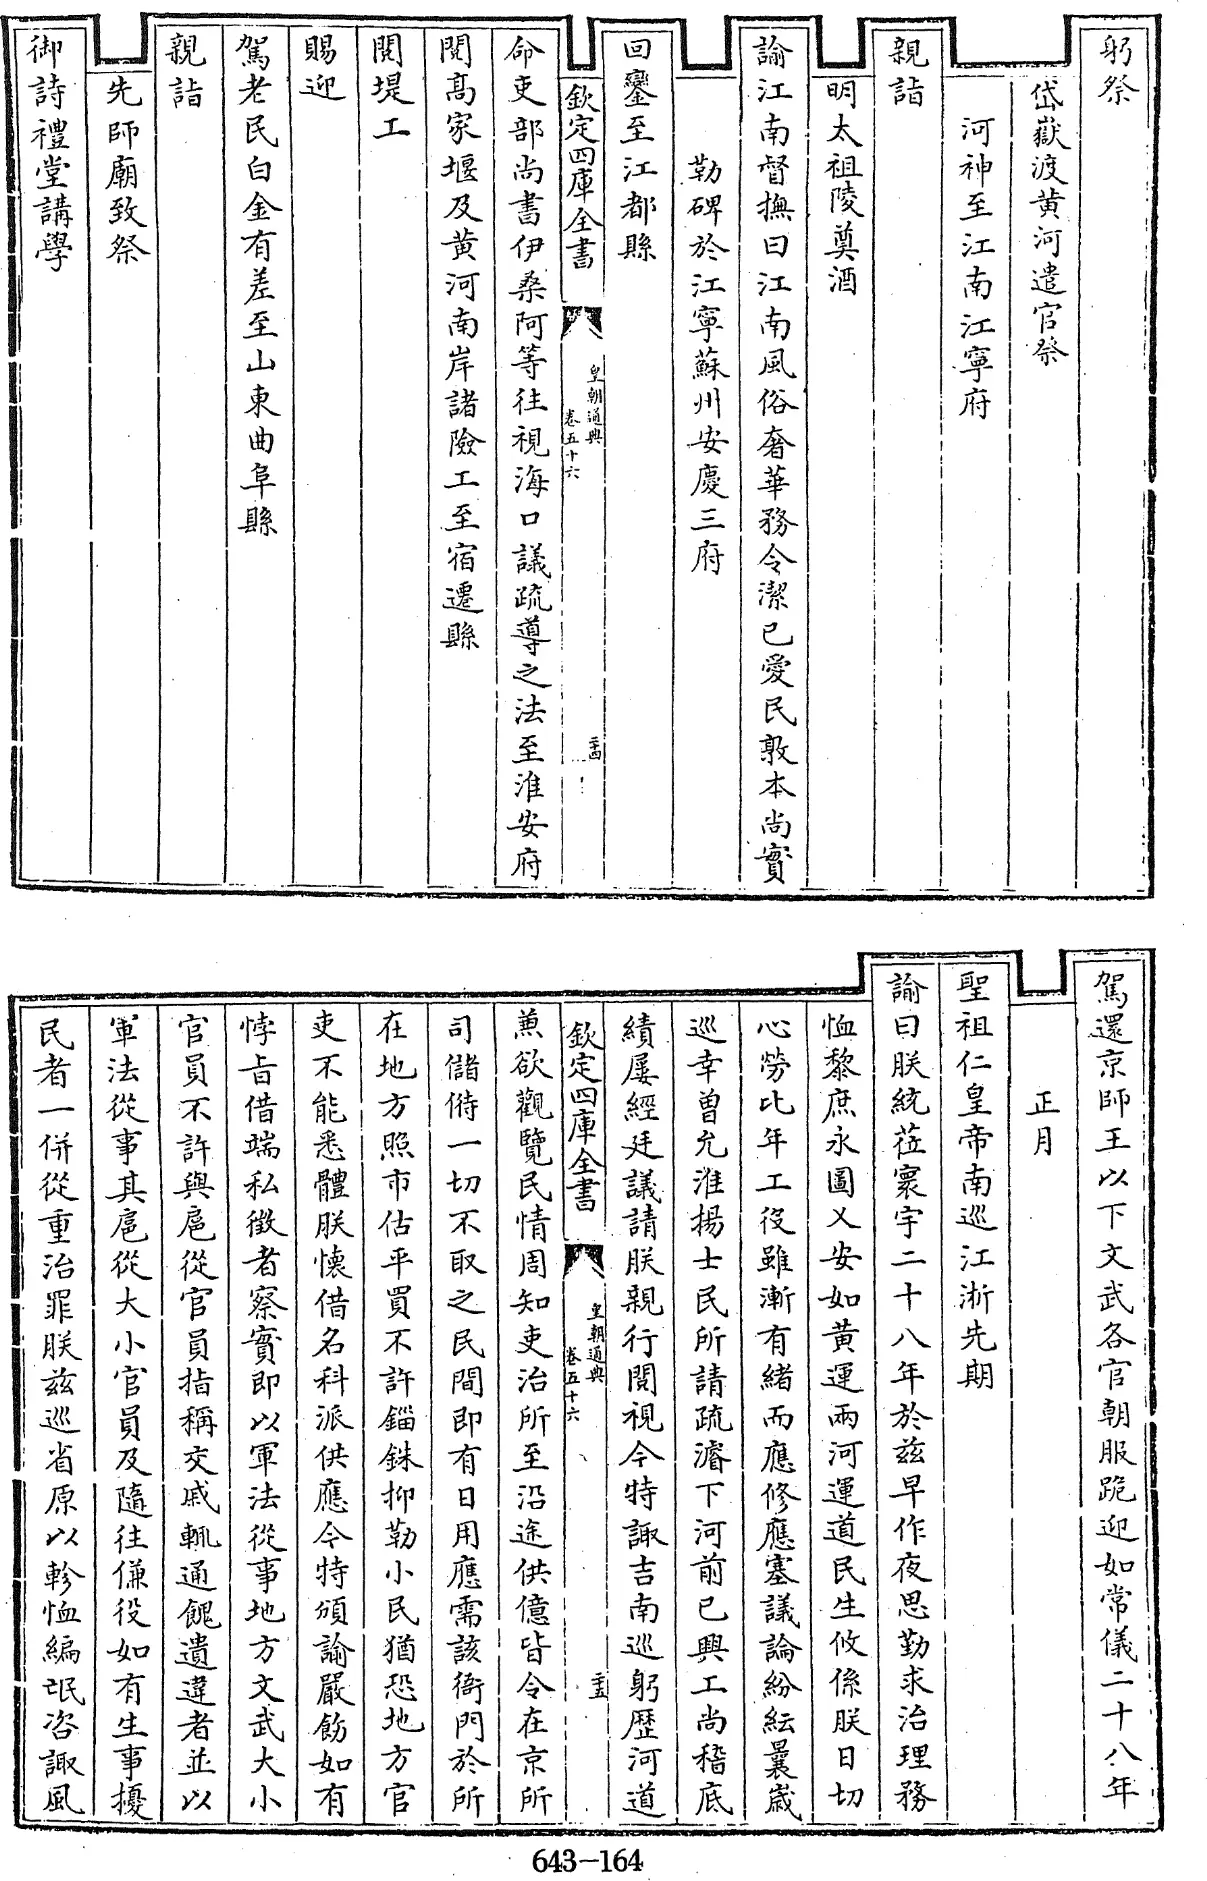 躬祭
岱嶽渡黄河遣官祭
河神至江南江寧府
親詣
明太祖陵奠酒
諭江南督撫曰江南風俗奢華務令潔已愛民敦本尚實
勒碑於江寧蘇州安慶三府
回鑾至江都縣
欽定四庫全書
皇朝通典
卷五十六
二十四
命吏部尚書伊桑阿等往視海口議疏導之法至淮安府
閱髙家堰及黄河南岸諸險工至宿遷縣
閱堤工
賜迎
駕老民白金有差至山東曲阜縣
親詣
先師廟致祭
御詩禮堂講學
駕還京師王以下文武各官朝服跪迎如常儀二十八年
正月
聖祖仁皇帝南巡江淅先期
諭曰朕統莅寰宇二十八年於兹早作夜思勤求治理務
恤黎庶永圖乂安如黄運兩河運道民生攸係朕日切
心勞比年工役雖漸有緒而應修應塞議論紛紜曩嵗
巡幸曽允淮揚士民所請疏濬下河前已興工尚稽底
績屢經廷議請朕親行閱視今特諏吉南巡躬歴河道
欽定四庫全書
皇朝通典
卷五十六
二十五
兼欲觀覽民情周知吏治所至沿途供億皆令在京所
司儲偫一切不取之民間即有日用應需該衙門於所
在地方照市估平買不許錙銖抑勒小民猶恐地方官
吏不能悉體朕懐借名科派供應今特頒諭嚴飭如有
悖㫖借端私徴者察實即以軍法從事地方文武大小
官員不許與扈從官員指稱交戚輒通餽遺違者並以
軍法從事其扈從大小官員及隨往傔役如有生事擾
民者一併從重治罪朕兹巡省原以軫恤編氓咨諏風
643-164